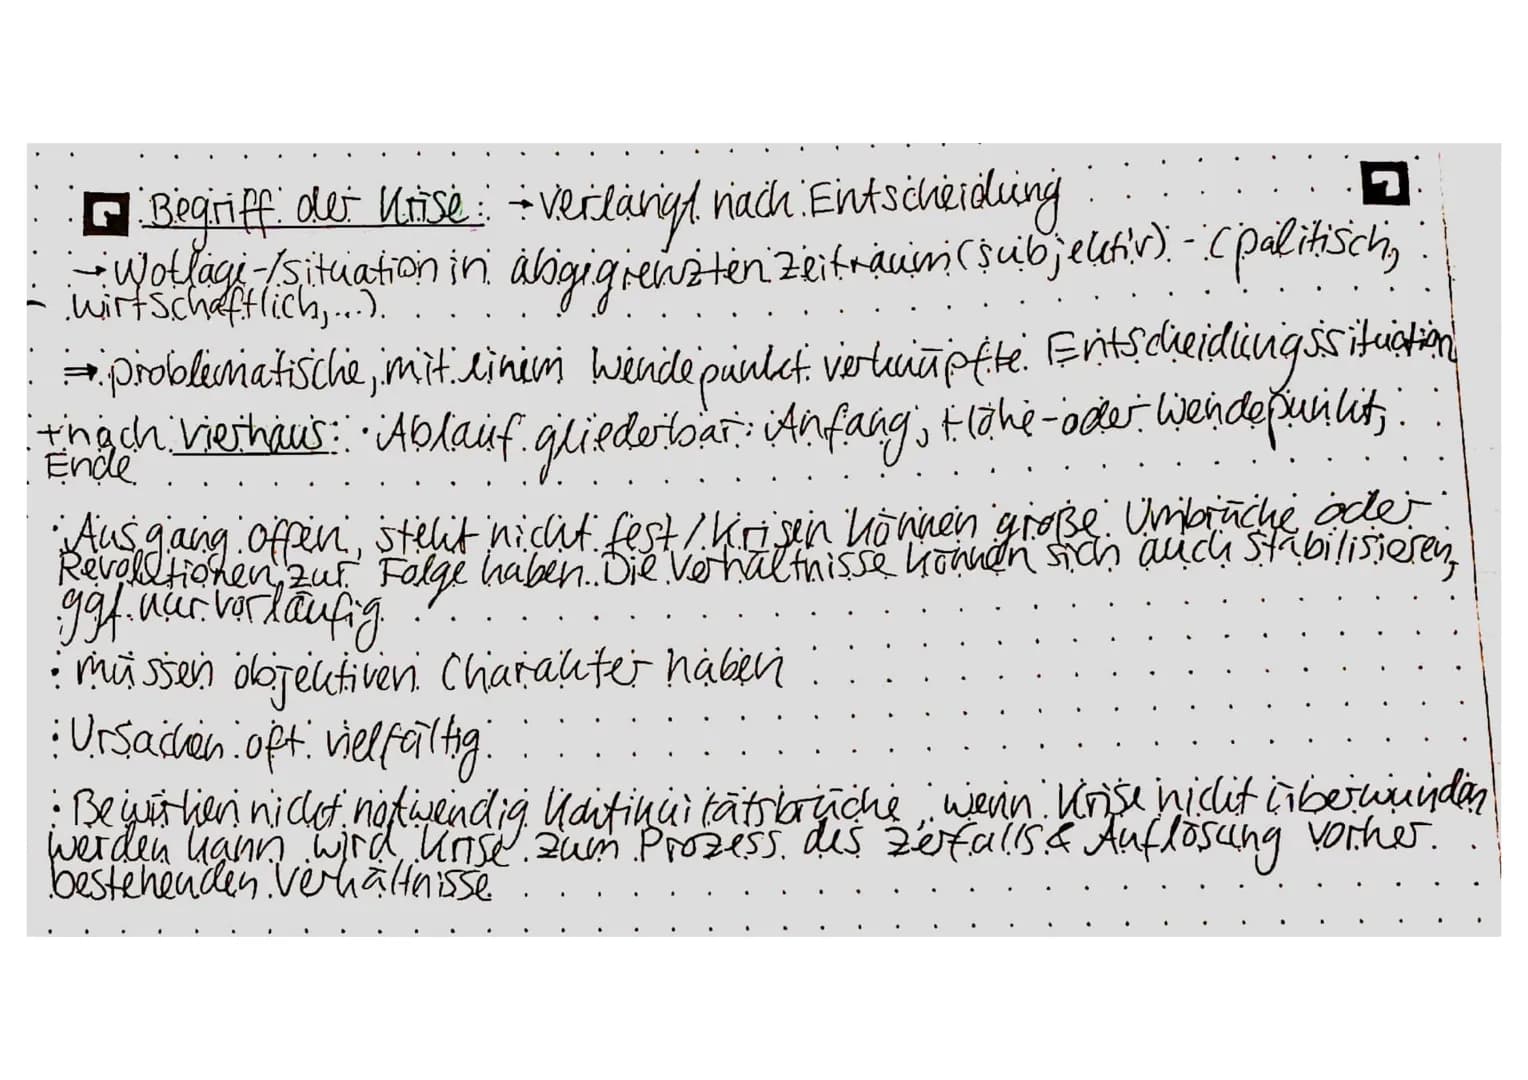 Begriff der Krise: → verlangt nach Entscheidung
→ Notlage-/situation in abgegrenzten Zeitraum (subjektiv) - (politisch,
wirtschaftlich,...)
⇒ problematische, mit einem Wendepunkt verknüpfte Entscheidungssituation
+nach Vierhaus: · Ablauf gliederbar: Anfang, Höhe-oder Wendepunkt,
Ende
· Ausgang offen, steht nicht fest / Krisen können große Umbrüche oder
Revolutionen zur Folge haben. Die Verhältnisse können sich auch stabilisieren,
ggf. nur vorläufig
· müssen objektiven Charakter haben
· Ursachen oft vielfältig
· Bewirken nicht notwendig Kontinuitätsbrüche, wenn Krise nicht überwunden
werden kann wird Krise zum Prozess des Zerfalls & Auflösung vorher
bestehenden Verhältnisse